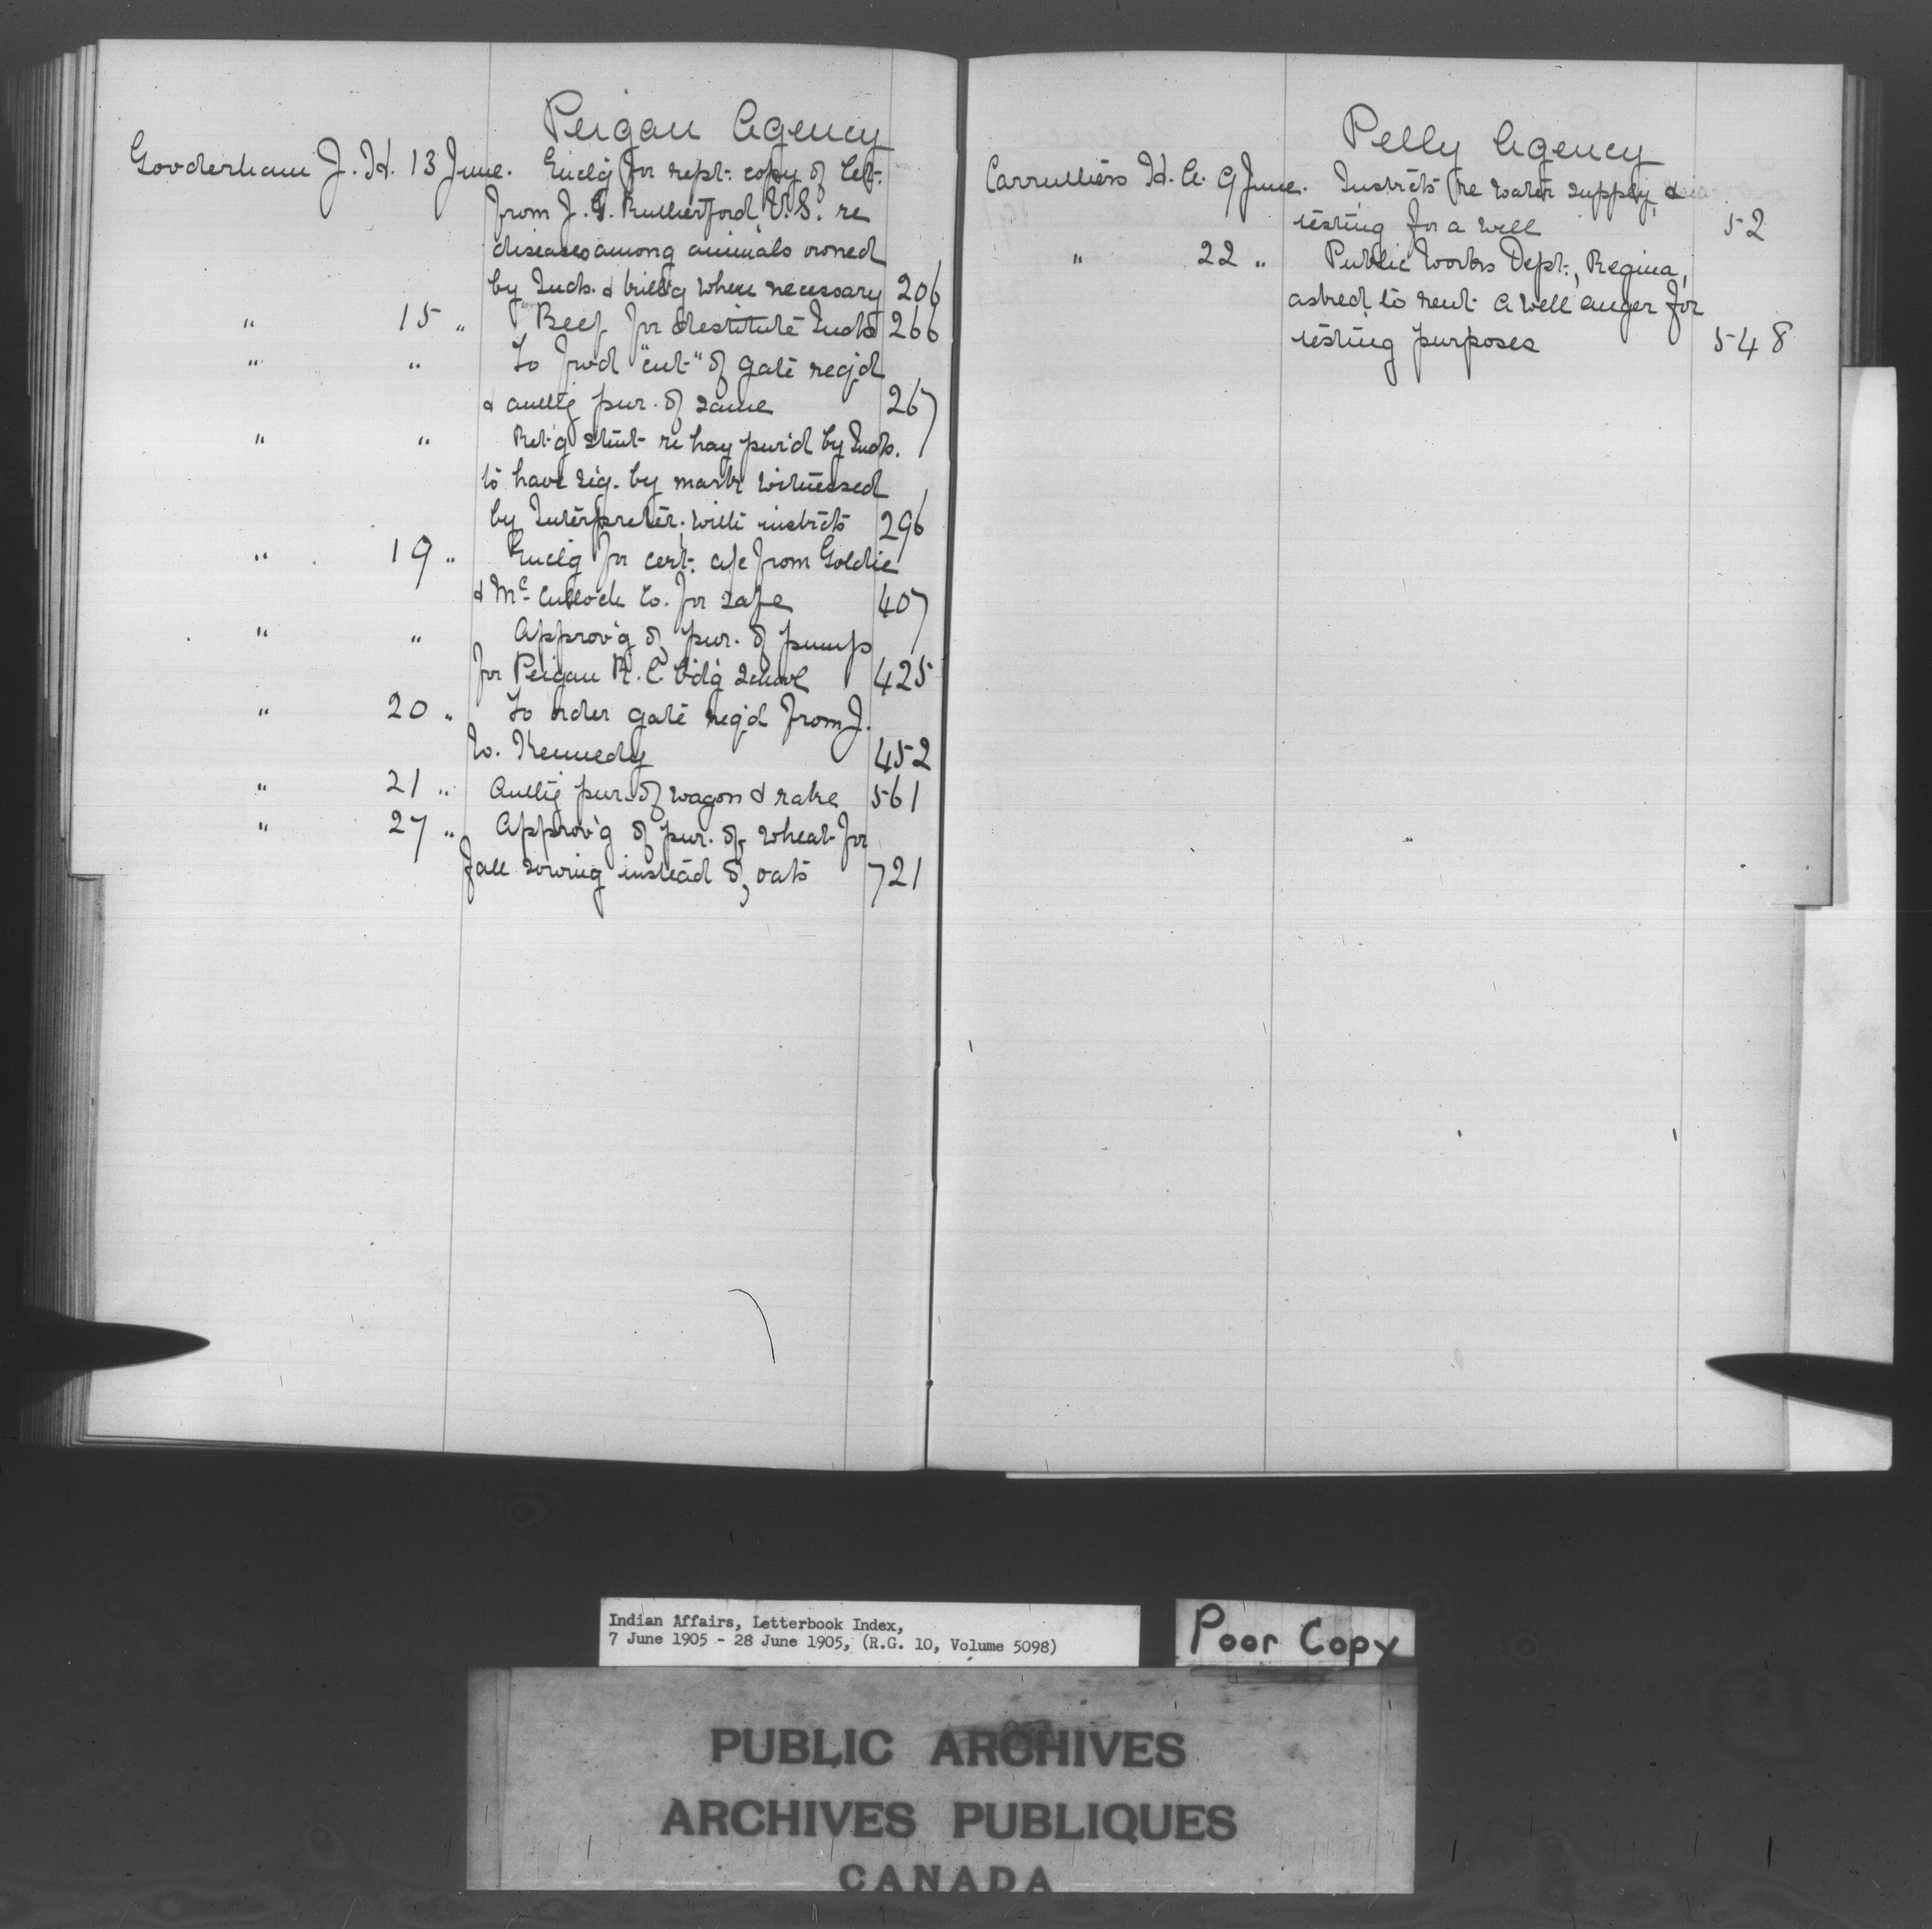 Peigan Agency
Gooderham J. H. 13 June. Enclg for rept. copy of let.
from J. G. Rutherford V.S. re
diseases among animals owned
by Inds. & where necessary 206
" 15 " Beef for destitute Inds 266
" " To fwd "cut" of gate req'd
& authg pur. of same 267
" " Ret'g stmt re hay pur'd by Inds.
to have sig. by mark witnessed
by Interpreter, with instrcts 296
" 19 " Enclg for cert. a/c from Goldie
& McCulloch Co. for safe 407
" " Approv'g of pur. of pump
for Peigan R. C. B'd'g School 425
" 20 " To order gate req'd from J.
W. Kennedy 452
" 21 " Authg pur. of wagon & rake 561
" 27 " Approv'g of pur. of wheat for
fall sowing instead of oats 721
Pelly Agency
Carruthers H. A. 9 June. Instrcts re water supply &
testing for a well 52
" 22 " Public Works Dept., Regina,
asked to rent a well auger for
testing purposes 548
Indian Affairs, Letterbook Index,
7 June 1905 - 28 June 1905, (R.G. 10, Volume 5098)
Poor Copy
PUBLIC ARCHIVES
ARCHIVES PUBLIQUES
CANADA